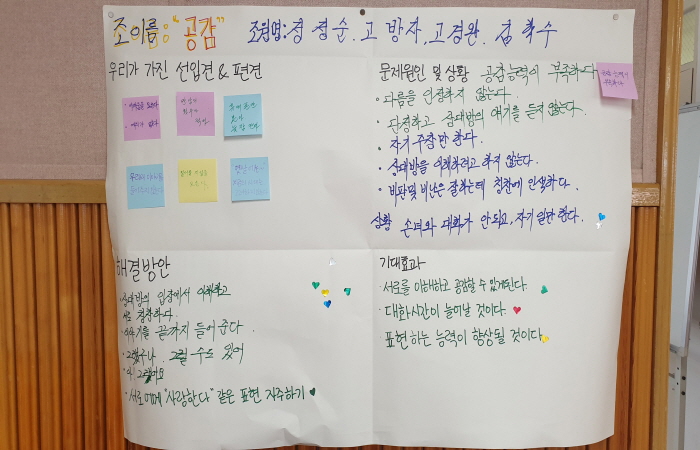 조이름: "공감" 조원명: 장정순. 고방자, 고경완. 김학수
우리가 가진 선입견 & 편견
문제원인 및 상황 공감능력이 부족하다
· 다름을 인정하지 않는다.
· 단정하고 상대방의 얘기를 듣지 않는다.
· 자기 주장만 한다.
· 상대방을 이해하려고 하지 않는다.
· 비판및 비난은 잘하는데 칭찬에 인색하다.
상황 손녀와 대화가 안되고, 자기 일만 한다.
해결방안
· 상대방의 입장에서 이해하고
서로 칭찬하다.
· 이야기를 끝까지 들어준다.
· 그랬구나. 그럴 수도 있어
· 아! 그랬어요
· 서로에게 "사랑한다" 같은 표현 자주하기
기대효과
· 서로를 이해하고 공감할 수 있게된다
· 대화시간이 늘어날 것이다.
· 표현하는 능력이 향상될 것이다